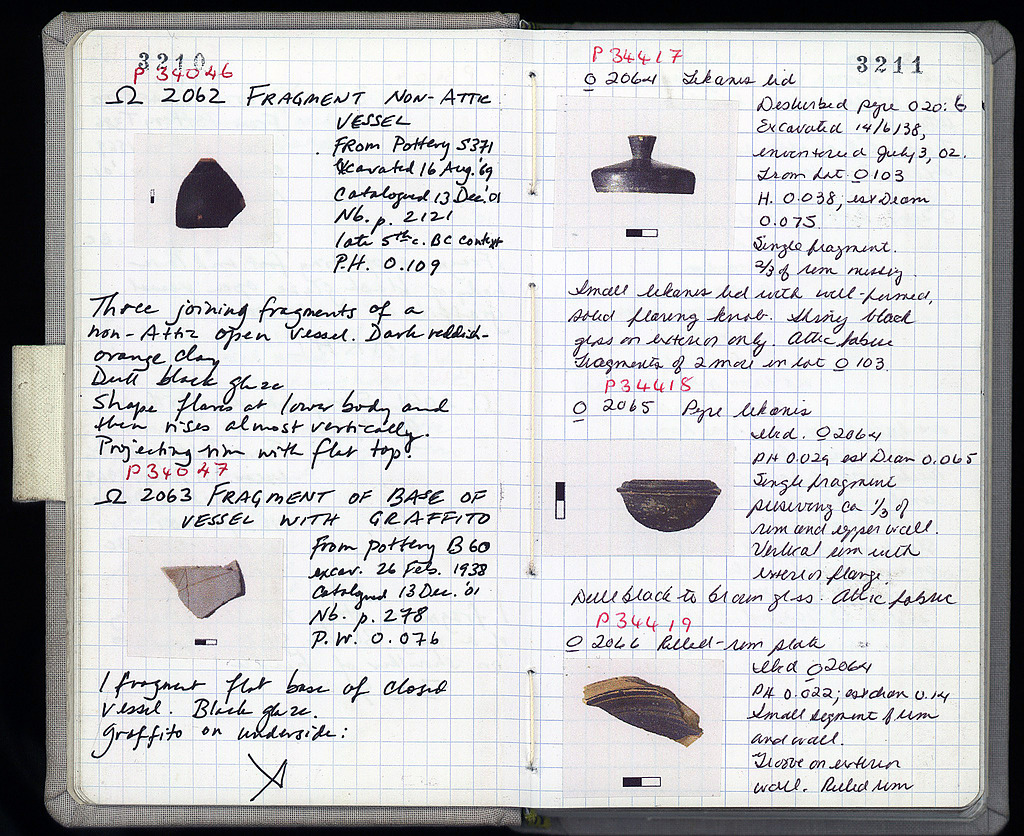 3210
P 34046
Ω 2062 FRAGMENT NON-ATTIC
VESSEL
From Pottery S371
Excavated 16 Aug.'69
Catalogued 13 Dec.'01
Nb. p. 2121
late 5th c. BC context
P.H. 0.109
Three joining fragments of a
non-Attic open vessel. Dark reddish-
orange clay
Dull black glaze
Shape flares at lower body and
then rises almost vertically.
Projecting rim with flat top.
P 34047
Ω 2063 FRAGMENT OF BASE OF
VESSEL WITH GRAFFITO
From pottery B 60
excav. 26 Feb. 1938
Catalogued 13 Dec. '01
Nb. p. 278
P.W. 0.076
1 fragment flat base of closed
vessel. Black glaze.
Graffito on underside:
3211
P 34417
O 2064 Lekanis lid
Disturbed pyre O 20:6
Excavated 14/6/38,
inventoried July 3, 02.
From Lot O 103
H. 0.038; est Diam
0.075.
Single fragment.
2/3 of rim missing.
Small lekanis lid with well-formed,
solid flaring knob. Shiny black
gloss on exterior only. Attic fabric
Fragments of 2 more in Lot O 103.
P 34418
O 2065 Pyre lekanis
Ibid. O 2064
PH 0.029 est Diam 0.065
Single fragment
preserving ca 1/3 of
rim and upper wall.
Vertical rim with
exterior flange.
Dull black to brown gloss. Attic fabric
P 34419
O 2066 Rilled-rim plate
Ibid O 2064
PH 0.022; est diam 0.14
Small segment of rim
and wall.
Groove on exterior
wall. Rilled rim